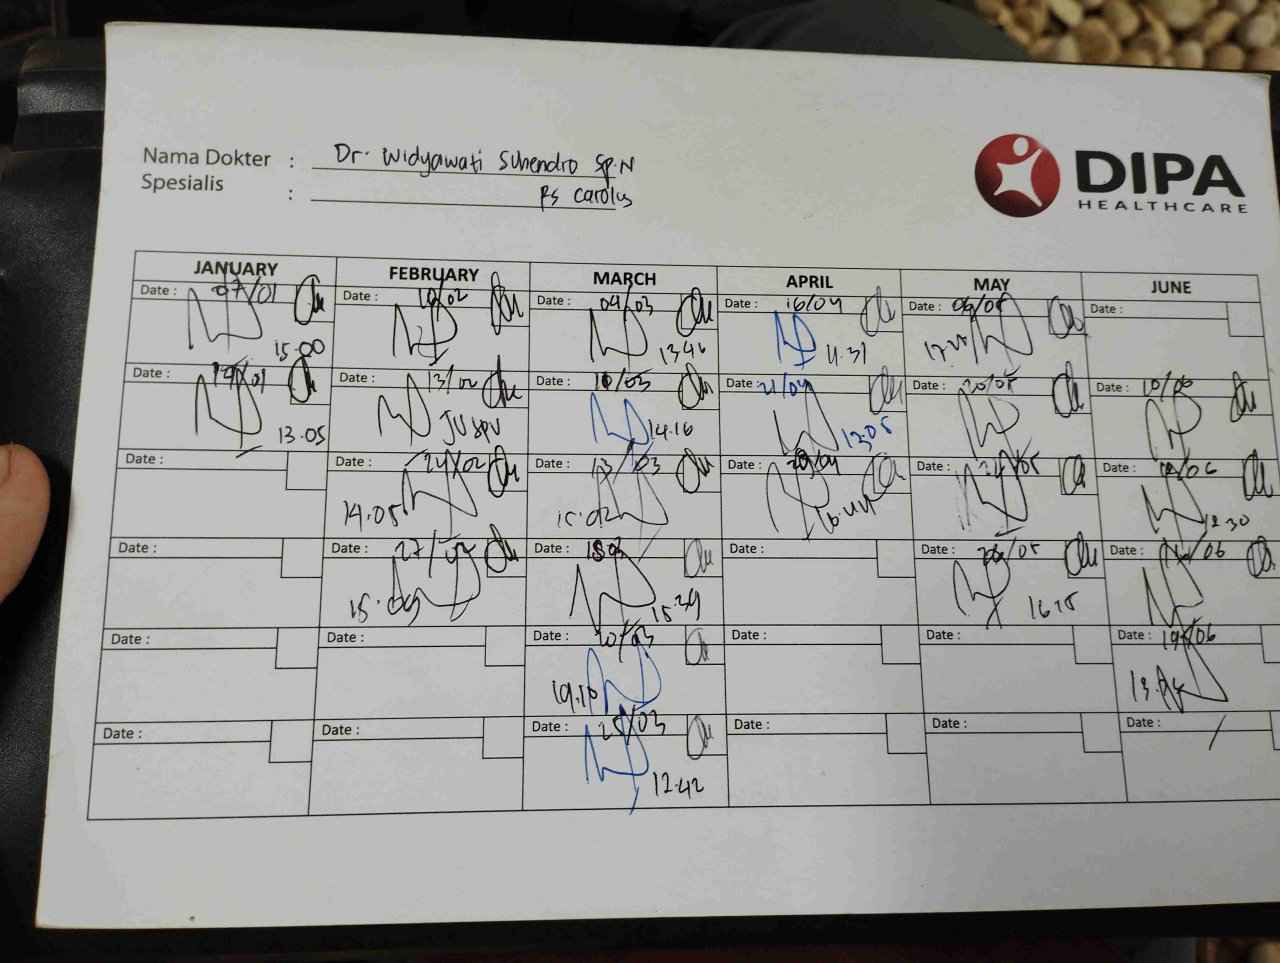 Nama Dokter : Dr. Widyawati Suhendro Sp.N
Spesialis : RS Carolus
DIPA
HEALTHCARE
JANUARY FEBRUARY MARCH APRIL MAY JUNE
Date : 07/01 Date : 10/02 Date : 04/03 Date : 16/04 Date : Date :
15.00 13.46 11.31
Date : Date : 13/02 Date : 10/03 Date : 21/04 Date : 20/05 Date : 10/06
13.05 14.16 13.05
Date : Date : 24/02 Date : 13/03 Date : Date : Date :
14.05 15.02 12.30
Date : Date : 27/02 Date : Date : Date : Date :
15.09 15.29 16.15
Date : Date : Date : Date : Date : Date : 19/06
19.10
Date : Date : Date : 25/03 Date : Date : Date :
12.42